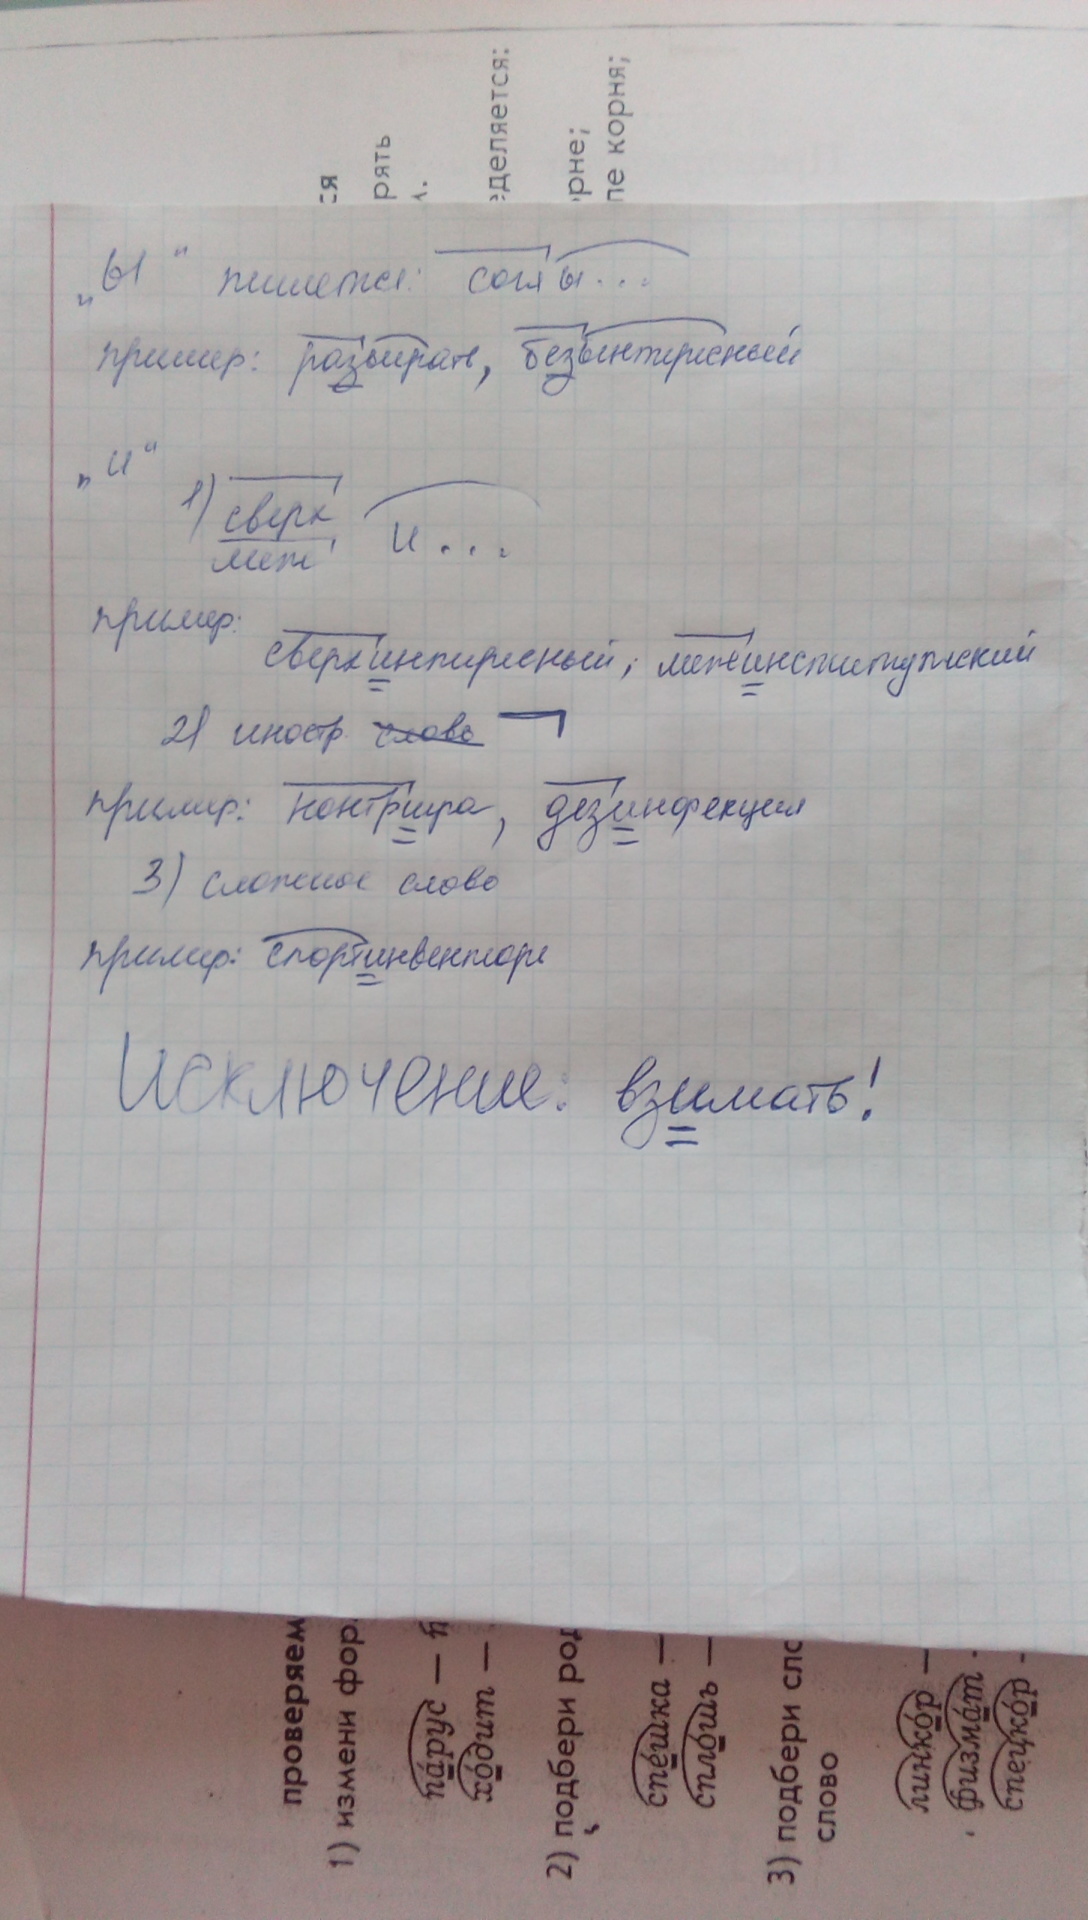 ся
рять
еделяется:
орне;
пе корня;
„Ы" пишется: согл ы...
пример: разыграть, безынтересный
„И"
1) сверх
меж
и...
пример:
сверхинтересный, межинститутский
2) иностр. слово ¬
пример: контригра, дезинфекция
3) сложное слово
пример: спортинвентарь
Исключение: взимать!
проверяем
1) измени фор
па́рус —
хо́дит —
2) подбери род
спе́шка —
спло́шь —
3) подбери сло
слово
линко́р —
физма́т -
спецко́р -